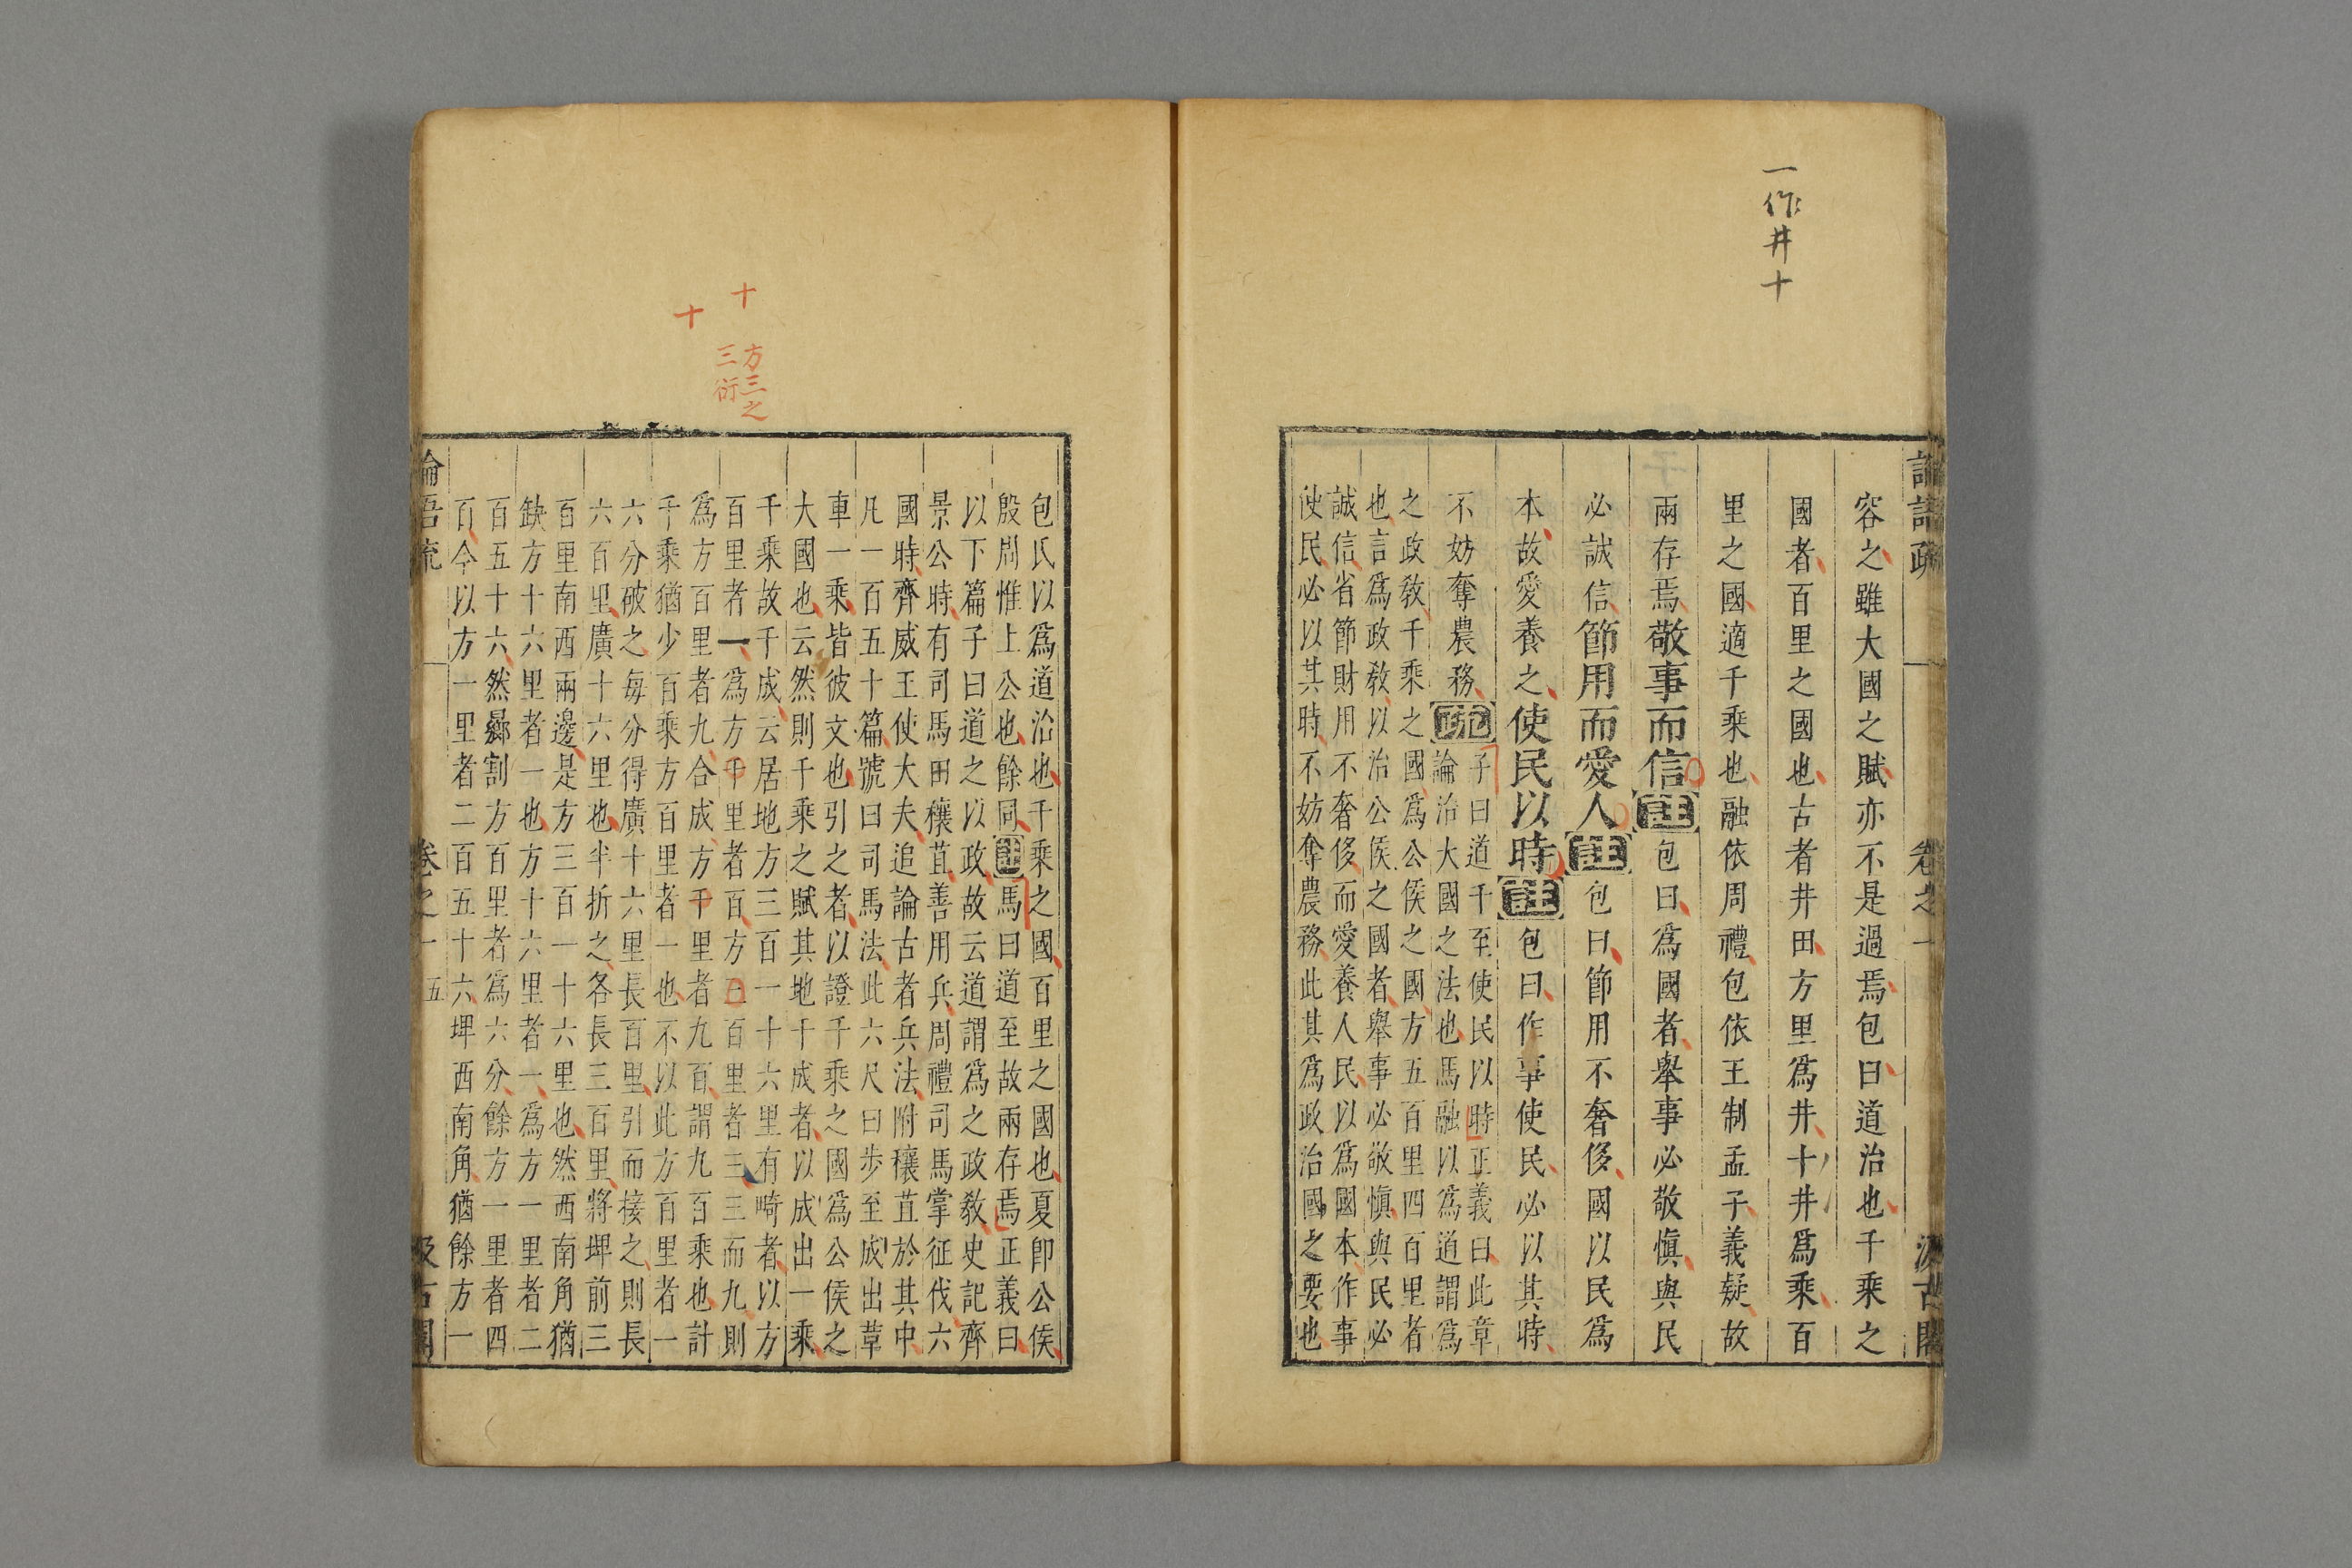 一作井十
論語疏
卷之一
汲古閣
容之雖大國之賦亦不是過焉包曰道治也千乘之
國者百里之國也古者井田方里爲井十井爲乘百
里之國適千乘也融依周禮包依王制孟子義疑故
兩存焉敬事而信註包曰爲國者舉事必敬慎與民
必誠信節用而愛人註包曰節用不奢侈國以民爲
本故愛養之使民以時註包曰作事使民必以其時
不妨奪農務疏子曰道千至使民以時正義曰此章
論治大國之法也馬融以爲道謂爲
之政敎千乘之國爲公侯之國方五百里四百里者
也言爲政敎以治公侯之國者舉事必敬慎與民必
誠信省節財用不奢侈而愛養人民以爲國本作事
使民必以其時不妨奪農務此其爲政治國之要也
十
十
方三之
三衍
包氏以爲道治也千乘之國百里之國也夏卽公侯
殷周惟上公也餘同註馬曰道至故兩存焉正義曰
以下篇子曰道之以政故云道謂爲之政敎史記齊
景公時有司馬田穰苴善用兵周禮司馬掌征伐六
國時齊威王使大夫追論古者兵法附穰苴於其中
凡一百五十篇號曰司馬法此六尺曰步至成出革
車一乘皆彼文也引之者以證千乘之國爲公侯之
大國也云然則千乘之賦其地千成者以成出一乘
千乘故千成云居地方三百一十六里有畸者以方
百里者一爲方千里者百方三百里者三三而九則
爲方百里者九合成方千里者九百謂九百乘也計
千乘猶少百乘方百里者一也不以此方百里者一
六分破之每分得廣十六里長百里引而接之則長
六百里廣十六里也半折之各長三百里將埤前三
百里南西兩邊是方三百一十六里也然西南角猶
缺方十六里者一也方十六里者一爲方一里者二
百五十六然曏割方百里者爲六分餘方一里者四
百今以方一里者二百五十六埤西南角猶餘方一
論語疏
卷之一
五
汲古閣